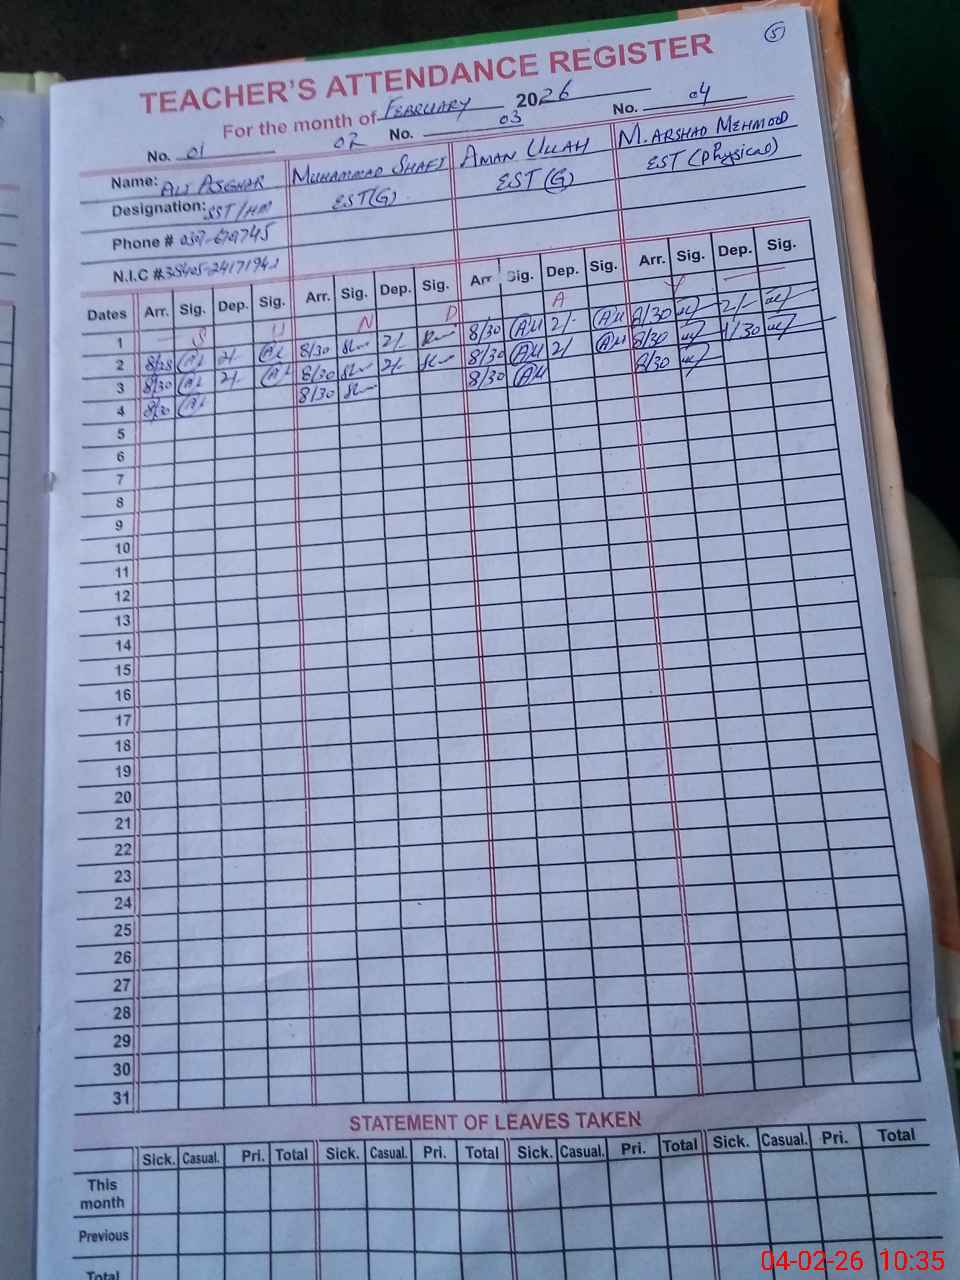 5
TEACHER'S ATTENDANCE REGISTER
For the month of FEBRUARY 2026
No. 01 02 No. 03 No. 04
Name: ALI ASGHAR MUHAMMAD SHAFI AMAN ULLAH M. ARSHAD MEHMOOD
Designation: SST/HM EST(G) EST(G) EST (Physical)
Phone #
N.I.C #
Dates Arr. Sig. Dep. Sig. Arr. Sig. Dep. Sig. Arr. Sig. Dep. Sig. Arr. Sig. Dep. Sig.
1 S U N D A Y
2 8/28 2/- 8/30 2/- 8/30 AU 2/- AU 8/30 2/-
3 8/30 2/- 8/30 2/- 8/30 AU 2/ AU 8/30 1/30
4 8/30 8/30 8/30 AU 8/30
5
6
7
8
9
10
11
12
13
14
15
16
17
18
19
20
21
22
23
24
25
26
27
28
29
30
31
STATEMENT OF LEAVES TAKEN
Sick. Casual. Pri. Total Sick. Casual. Pri. Total Sick. Casual. Pri. Total Sick. Casual. Pri. Total
This month
Previous
Total
04-02-26 10:35